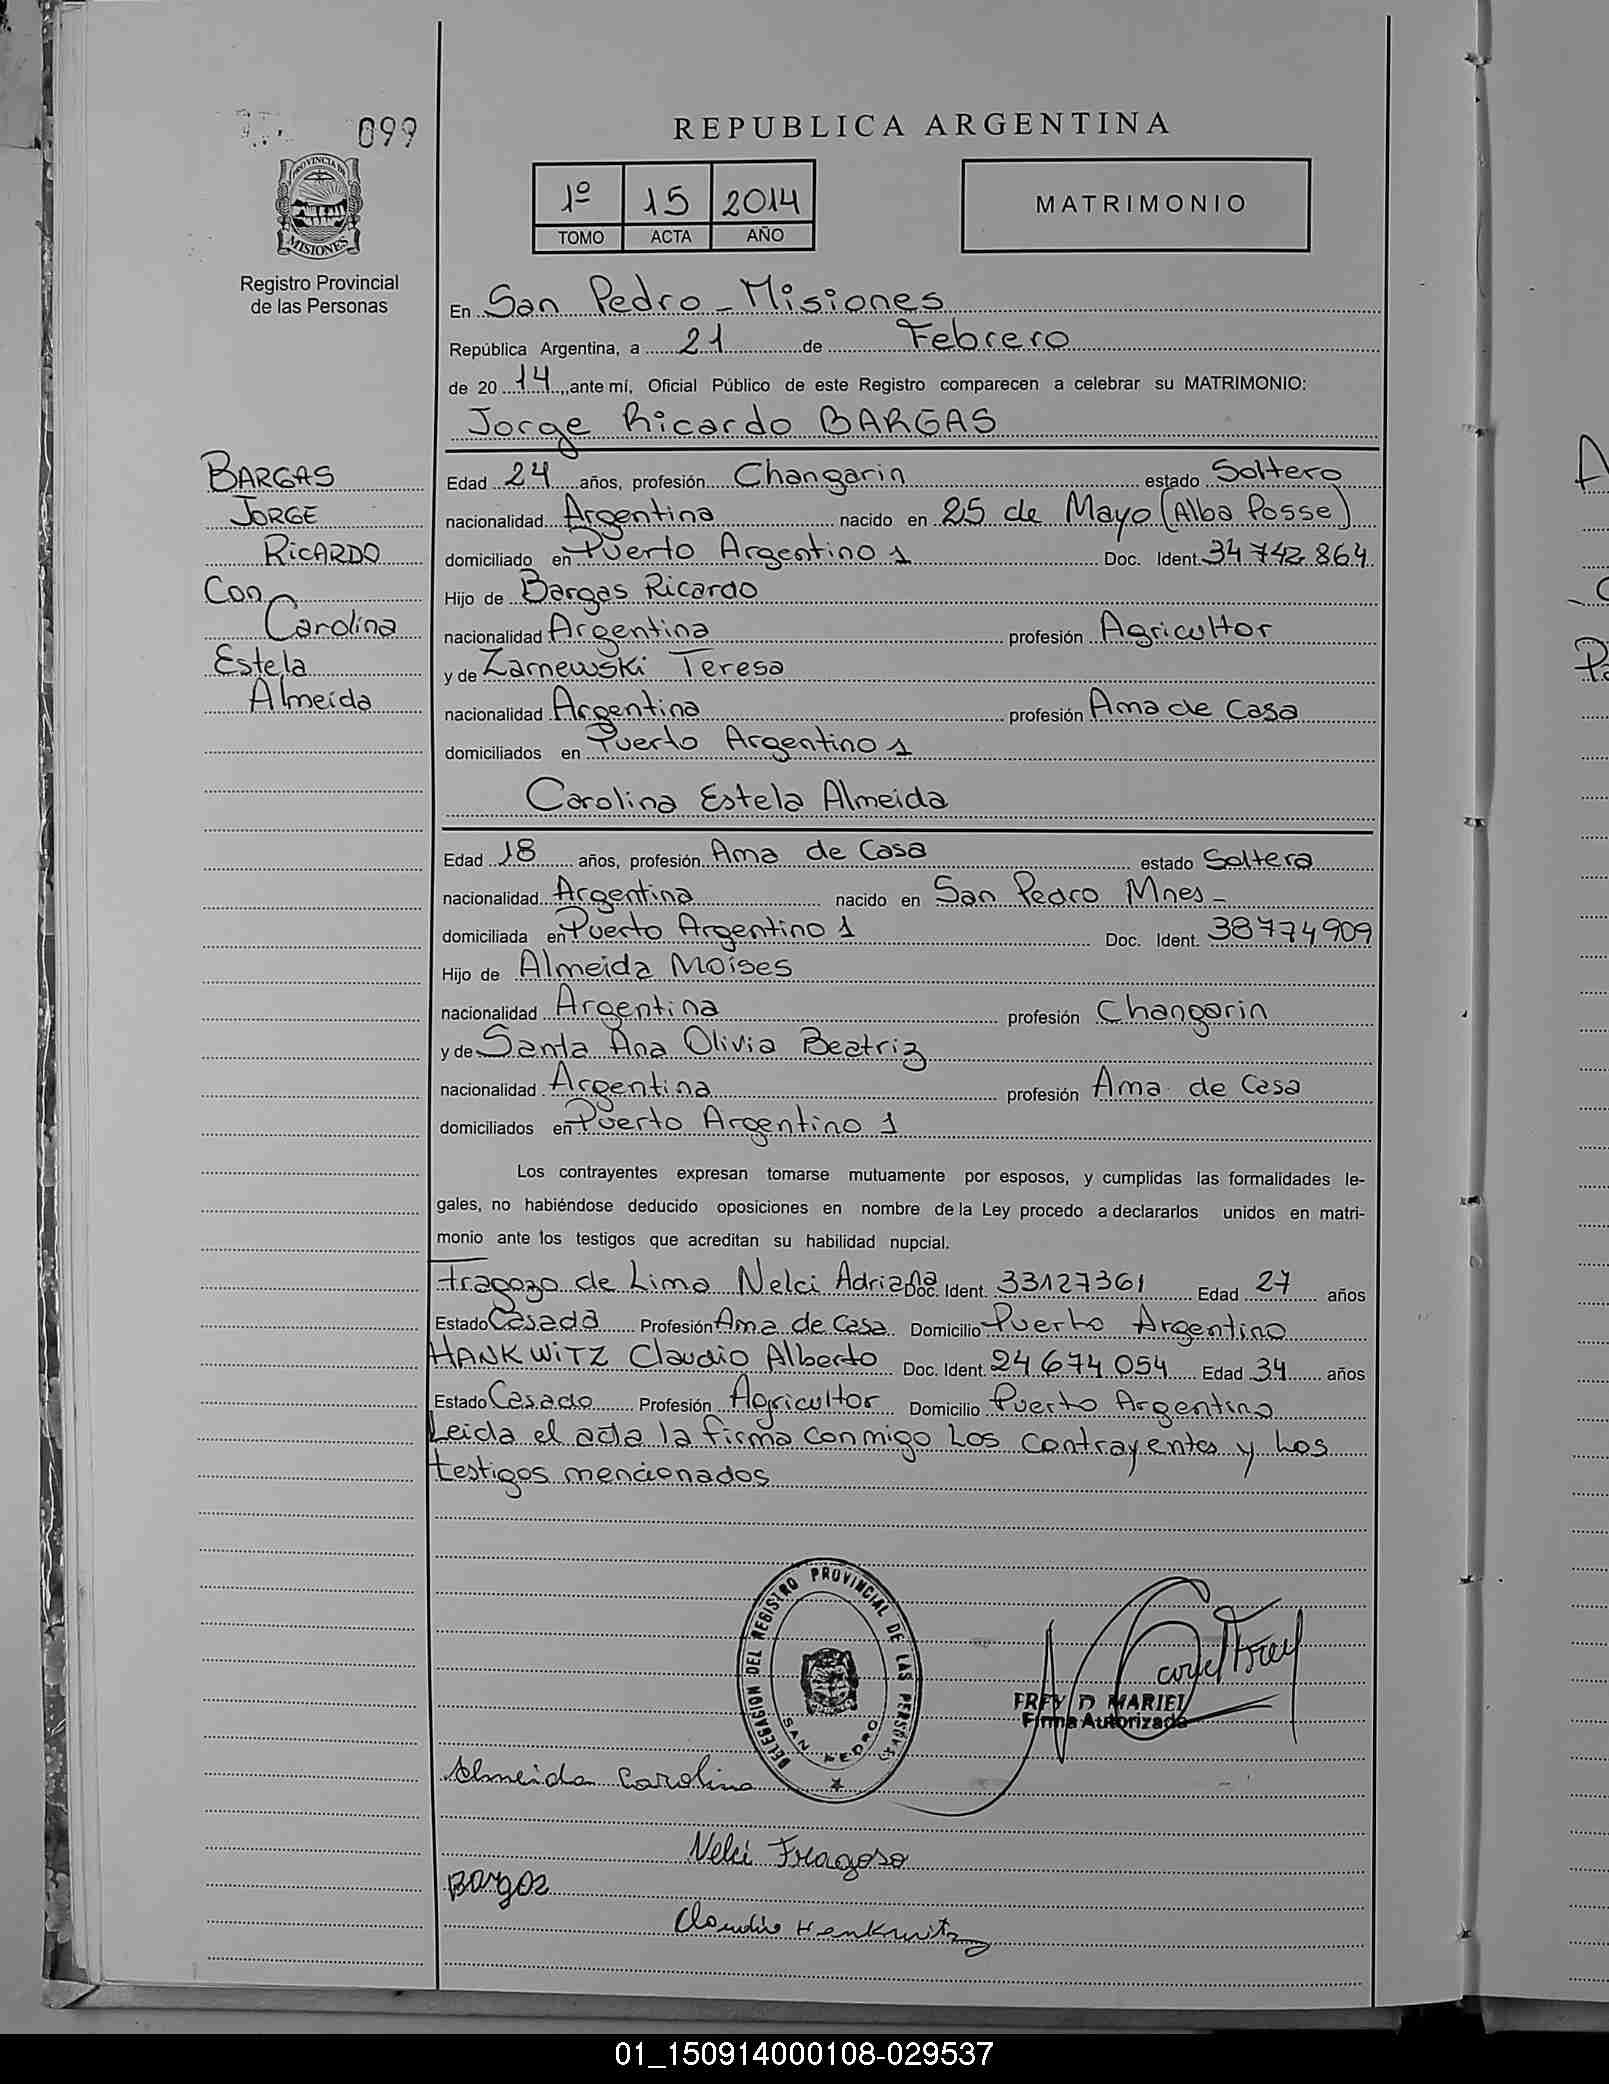 099
PROVINCIA DE
MISIONES
Registro Provincial
de las Personas
REPUBLICA ARGENTINA
1º 15 2014
TOMO ACTA AÑO
MATRIMONIO
En San Pedro - Misiones
República Argentina, a 21 de Febrero
de 20 14, ante mí, Oficial Público de este Registro comparecen a celebrar su MATRIMONIO:
Jorge Ricardo BARGAS
BARGAS
JORGE
RICARDO
Con
Carolina
Estela
Almeida
Edad 24 años, profesión Changarin estado Soltero
nacionalidad Argentina nacido en 25 de Mayo (Alba Posse)
domiciliado en Puerto Argentino 1 Doc. Ident. 34 742 864
Hijo de Bargas Ricardo
nacionalidad Argentina profesión Agricultor
y de Zarnewski Teresa
nacionalidad Argentina profesión Ama de Casa
domiciliados en Puerto Argentino 1
Carolina Estela Almeida
Edad 18 años, profesión Ama de Casa estado Soltera
nacionalidad Argentina nacido en San Pedro Mnes -
domiciliada en Puerto Argentino 1 Doc. Ident. 38774909
Hijo de Almeida Moises
nacionalidad Argentina profesión Changarin
y de Santa Ana Olivia Beatriz
nacionalidad Argentina profesión Ama de Casa
domiciliados en Puerto Argentino 1
Los contrayentes expresan tomarse mutuamente por esposos, y cumplidas las formalidades le-
gales, no habiéndose deducido oposiciones en nombre de la Ley procedo a declararlos unidos en matri-
monio ante los testigos que acreditan su habilidad nupcial.
Fragozo de Lima Nelci Adriana Doc. Ident. 33127361 Edad 27 años
Estado Casada Profesión Ama de Casa Domicilio Puerto Argentino
HANKWITZ Claudio Alberto Doc. Ident. 24 674 054 Edad 34 años
Estado Casado Profesión Agricultor Domicilio Puerto Argentino
Leida el acta la firma conmigo Los Contrayentes y Los
testigos mencionados
DELEGACION DEL REGISTRO PROVINCIAL DE LAS PERSONAS
SAN PEDRO
FREY D MARIEL
Firma Autorizada
Almeida Carolina
Nelci Fragoso
Bargas
Claudio Hankwitz
01_150914000108-029537